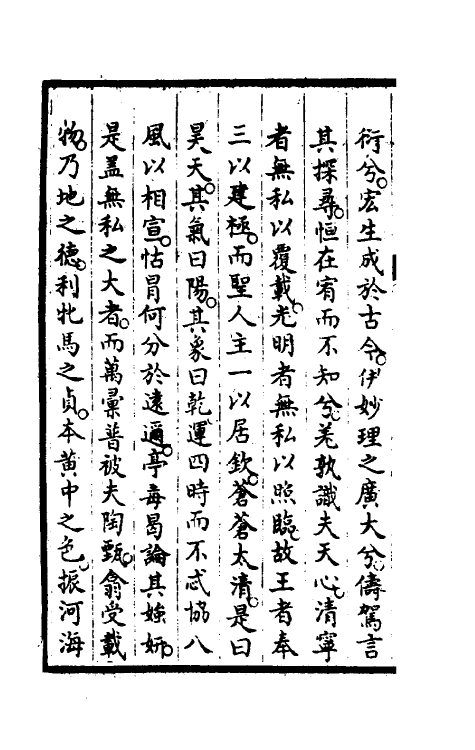 衍兮宏生成於古今伊妙理之廣大兮儔駕言
其探尋恒在宥而不知兮羌孰識夫天心清寧
者無私以覆載光明者無私以照臨故王者奉
三以建極而聖人主一以居欽蒼蒼太清是曰
昊天其氣曰陽其象曰乾運四時而不忒協八
風以相宣怙冒何分於遠邇亭毒曷論其媸妍
是盖無私之大者而萬彚普被夫陶甄翕受載
物乃地之德利牝馬之貞本黄中之色振河海